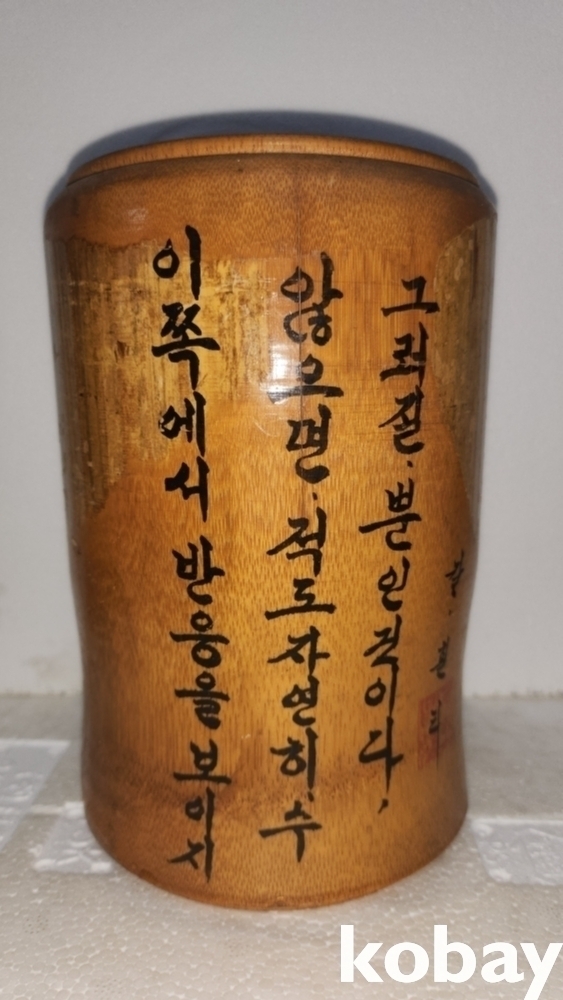 이쪽에서 반응을 보이지
않으면, 적도 자연히, 수
그러질, 뿐인 것이다,
kobay